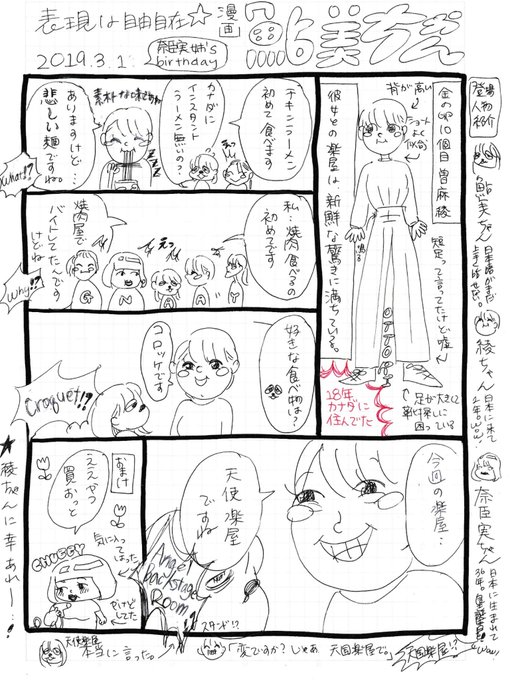 表現は自由自在☆
漫画
2019.3.1.
奈臣実姉's
birthday
登場
人物
紹介
鮎美ちゃん
綾ちゃん
日本に来て
2年。Wow!
奈臣実ちゃん
日本に生まれて
金のVIP10個目 曽麻綾
背が高い
ショート
よく
似合う
短足って言ってたけど嘘。
OTTORI
彼女との楽屋は新鮮な驚きに満ちている。
18年
カナダに
住んでた
↑足が大きくて
靴探しに
困っている
チキンラーメン
初めて食べます
カナダに
インスタント
ラーメン無いの?
素朴な味ですね
ありますけど…
悲しい麺ですね。
What!?
私…焼肉食べるの
初めてです
えっ
焼肉屋で
バイトしてたんです
けどね
Why!?
好きな食べ物は?
コロッケです
Croquet!?
今回の楽屋…
天使楽屋
ですね
Angel
backstage
Room!?
スタンド!?
おまけ
ええやつ
買おっと
気に入って
はった
CHUEEY
★綾ちゃんに幸あれー…!
天使楽屋
本当に言った。
「変ですか?じゃあ 天国楽屋で。」
天国楽屋!?